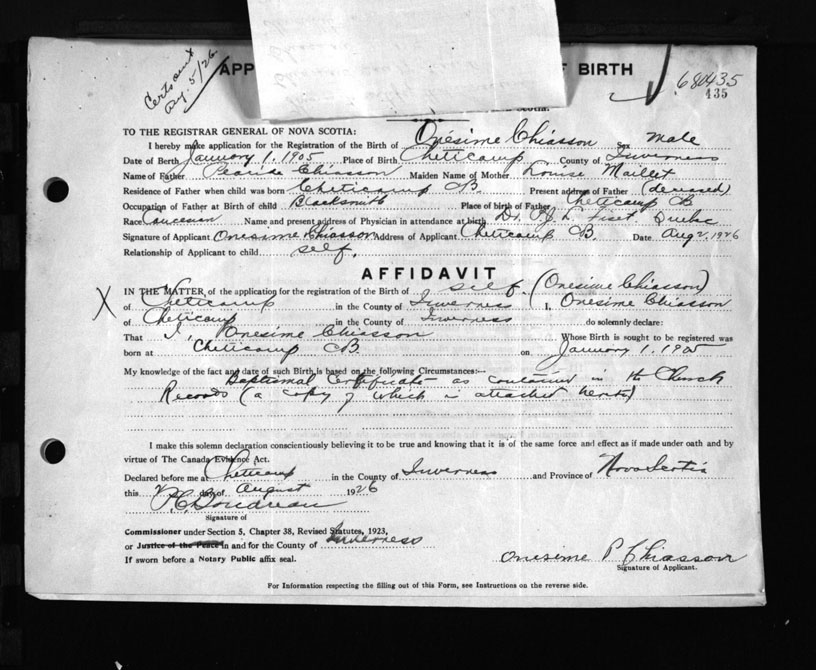 Cert sent
Aug. 5/26
APP BIRTH
680435
435
TO THE REGISTRAR GENERAL OF NOVA SCOTIA:
I hereby make application for the Registration of the Birth of Onésime Chiasson Sex Male
Date of Birth January 1, 1905 Place of Birth Cheticamp County of Inverness
Name of Father Chiasson Maiden Name of Mother Louise Maillet
Residence of Father when child was born Cheticamp CB. Present address of Father (deceased)
Occupation of Father at Birth of child Blacksmith Place of birth of Father Cheticamp CB
Race Name and present address of Physician in attendance at birth Dr. Fiset Quebec
Signature of Applicant Onesime Chiasson Address of Applicant Cheticamp CB. Date Aug 2, 1926
Relationship of Applicant to child self.
AFFIDAVIT
X IN THE MATTER, of the application for the registration of the Birth of self (Onesime Chiasson)
of Cheticamp in the County of Inverness I, Onesime Chiasson
of Cheticamp in the County of Inverness do solemnly declare:
That I, Onesime Chiasson Whose Birth is sought to be registered was
born at Cheticamp CB. on January 1, 1905
My knowledge of the fact and date of such Birth is based on the following Circumstances:—
Baptismal Certificate as contained in the Church
Records (a copy of which is attached hereto)
I make this solemn declaration conscientiously believing it to be true and knowing that it is of the same force and effect as if made under oath and by
virtue of The Canada Evidence Act.
Declared before me at Cheticamp in the County of Inverness and Province of Nova Scotia
this 2 day of August 1926
Boudreau
Signature of
Commissioner under Section 5, Chapter 38, Revised Statutes, 1923,
or Justice of the Peace in and for the County of Inverness
If sworn before a Notary Public affix seal.
Onesime P Chiasson
Signature of Applicant.
For Information respecting the filling out of this Form, see Instructions on the reverse side.